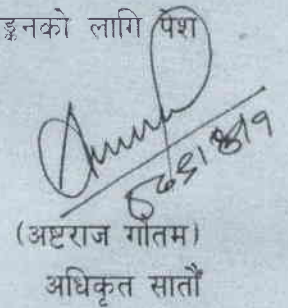 इनको लागि पेश
(अष्टराज गौतम)
अधिकृत सातौं